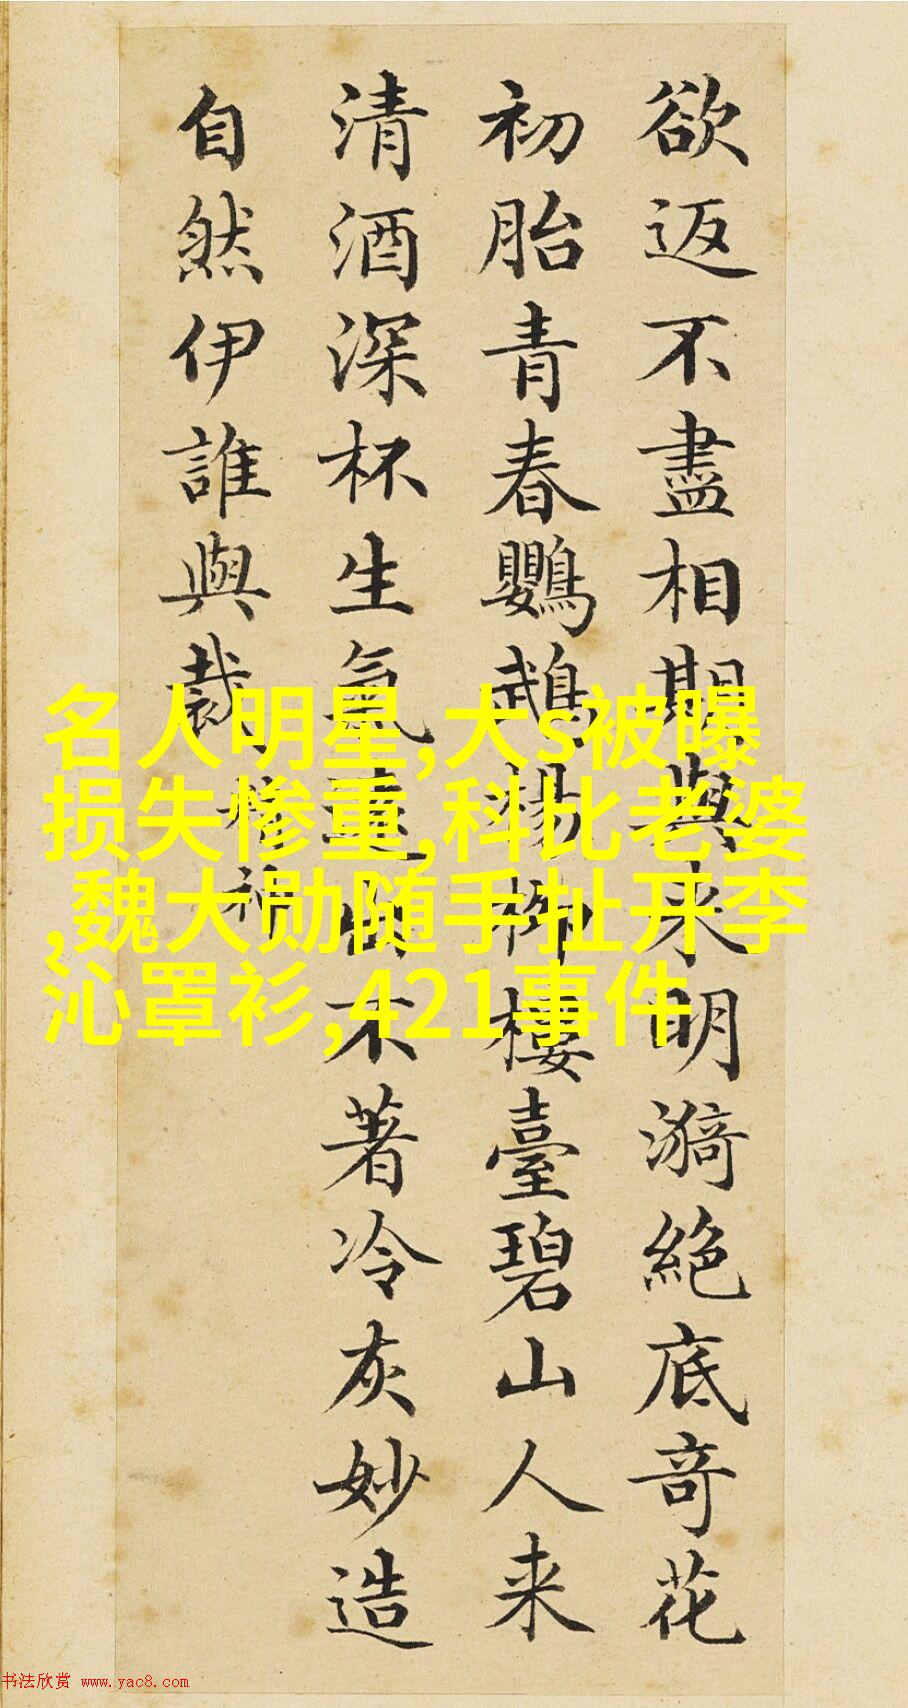 欲返不盡相期與来明漪絕底奇花
初胎青春鸚鵡楊柳樓臺碧山人来
清酒深杯生氣遠出不著冷灰妙造
自然伊誰與裁 精神
名人明星,大s被曝
损失惨重,科比老婆
,魏大勋随手扯开李
沁罩衫,421事件
书法欣赏 www.yac8.com